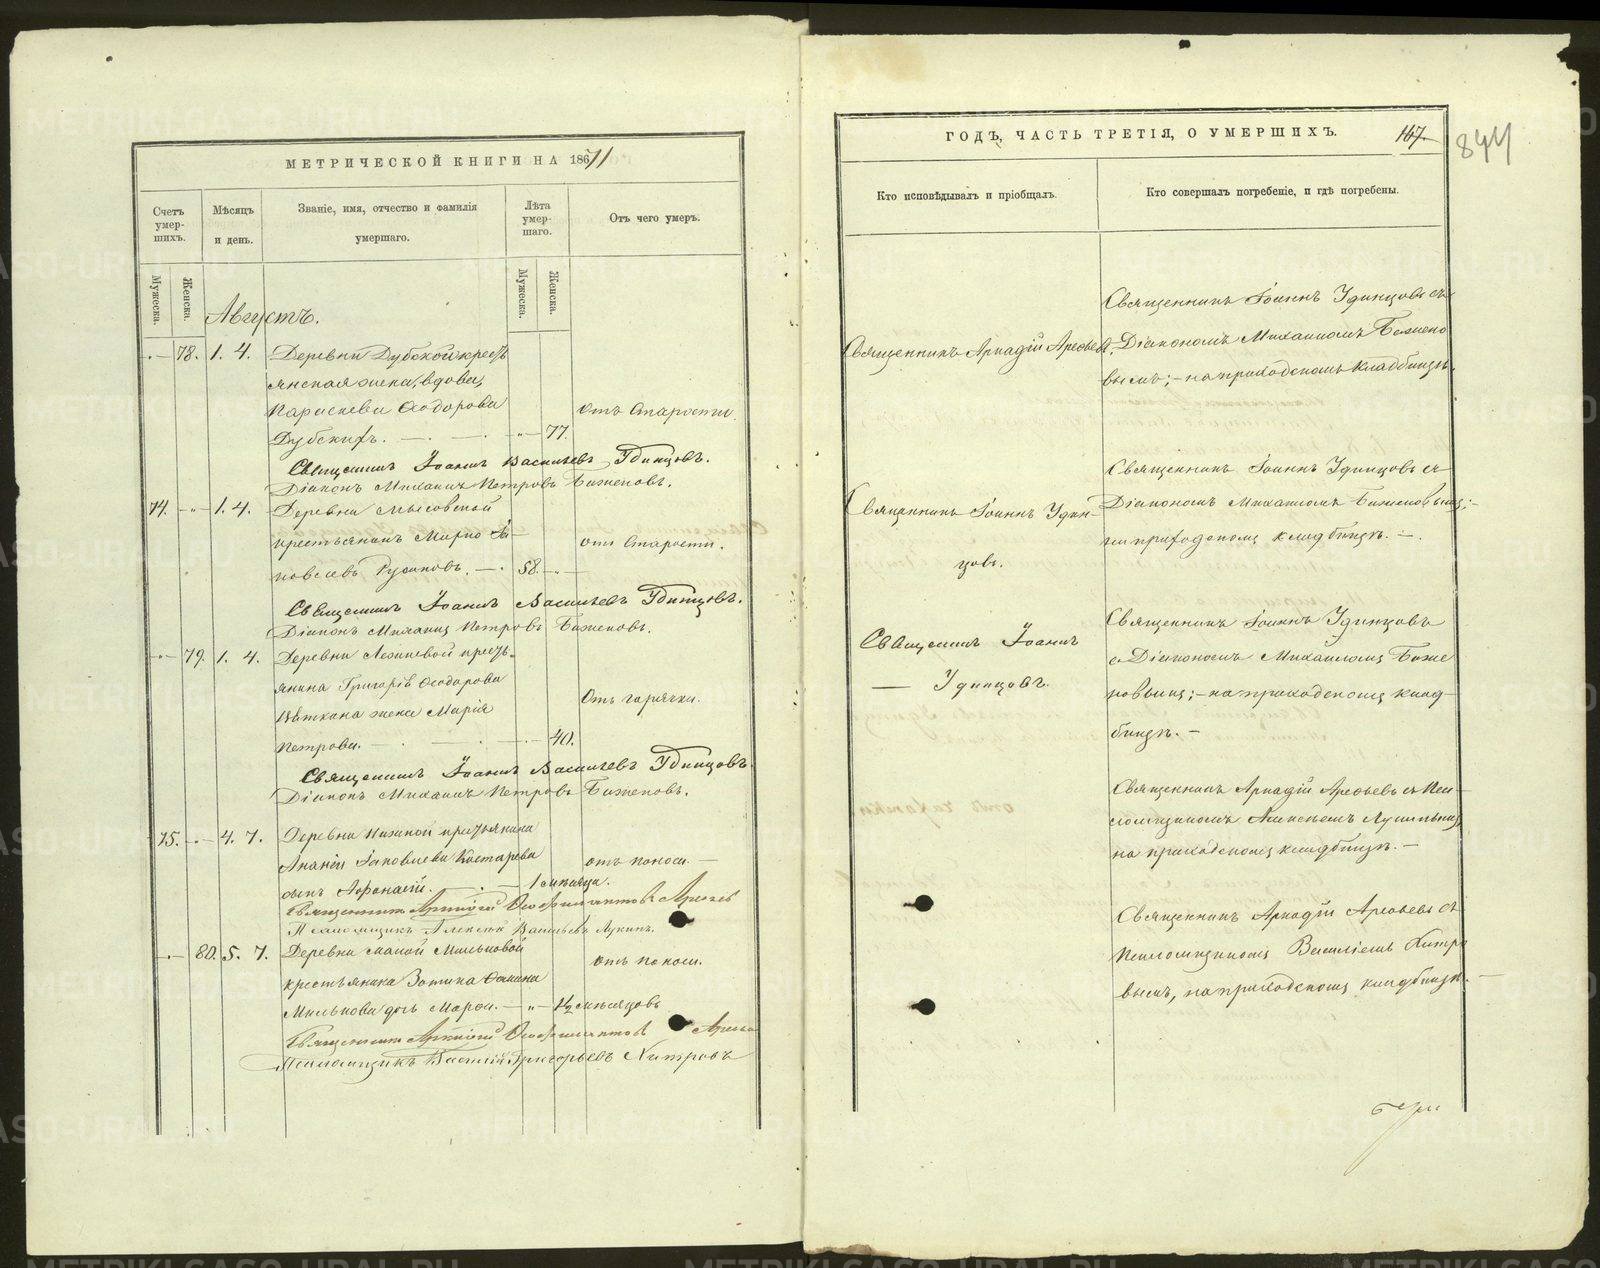 МЕТРИЧЕСКОЙ КНИГИ НА 18671
Счетъ умер-шихъ.
Мѣсяцъ и день.
Званіе, имя, отчество и фамилія умершаго.
Лѣта умер-шаго.
Отъ чего умеръ.
Мужеска.
Женска.
Мужеска.
Женска.
Августъ.
78. 1. 4. Деревни Дубской крестъ
янская жена, вдова,
Параскева Ѳеодорова
отъ старости.
Дубскихъ. 77.
Священникъ Іоаннъ Васильевъ Удинцовъ.
Діаконъ Михаилъ Петровъ Баженовъ.
74. 1. 4. Деревни Мысовской
крестьянинъ
отъ старости.
Русаковъ. 58.
Священникъ Іоаннъ Васильевъ Удинцовъ.
Діаконъ Михаилъ Петровъ Баженовъ.
79. 1. 4. Деревни кресть-
янина Григорія Ѳеодорова
отъ горячки.
жена Марія
Петрова. 40.
Священникъ Іоаннъ Васильевъ Удинцовъ.
Діаконъ Михаилъ Петровъ Баженовъ.
75. 4. 7. Деревни крестьянина
Ананіи Іаковлева Костарева
отъ поноса.
сынъ Аѳанасій. 1 мѣсяца.
Священникъ Аркадій Арефьев
Псаломщикъ Алексѣй Васильевъ Лукинъ.
80. 5. 7. Деревни Малой Мильковой
отъ поноса.
крестьянина Зотика
Милькова дочь 1½ мѣсяцовъ
Священникъ Аркадій
Псаломщикъ Василій Григорьевъ Хитровъ
ГОДЪ, ЧАСТЬ ТРЕТІЯ, О УМЕРШИХЪ.
167.
844
Кто исповѣдывалъ и пріобщалъ.
Кто совершалъ погребеніе, и гдѣ погребены.
Священникъ Аркадій Арефьевъ.
Священникъ Іоаннъ Удинцовъ съ
Діакономъ Михаиломъ Бажено
вымъ; на приходскомъ кладбищѣ.
Священникъ Іоаннъ Удин-
цовъ.
Священникъ Іоаннъ Удинцовъ съ
Діакономъ Михаиломъ Баженовымъ;
на приходскомъ кладбищѣ.
Священникъ Іоаннъ
Удинцовъ.
Священникъ Іоаннъ Удинцовъ
съ Діакономъ Михаиломъ Баже
новымъ; на приходскомъ клад-
бищѣ.
Священникъ Аркадій Арефьевъ съ Пса-
ломщикомъ Алексѣемъ Лукинымъ
на приходскомъ кладбищѣ.
Священникъ Аркадій Арефьевъ съ
Псаломщикомъ Василіемъ Хитро
вымъ, на приходскомъ кладбищѣ.
METRIKI.GASO-URAL.RU